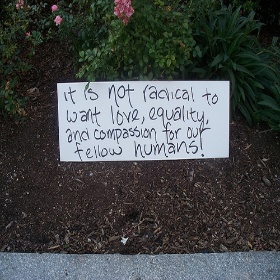 it is not radical to
want love, equality,
and compassion for our
fellow humans!